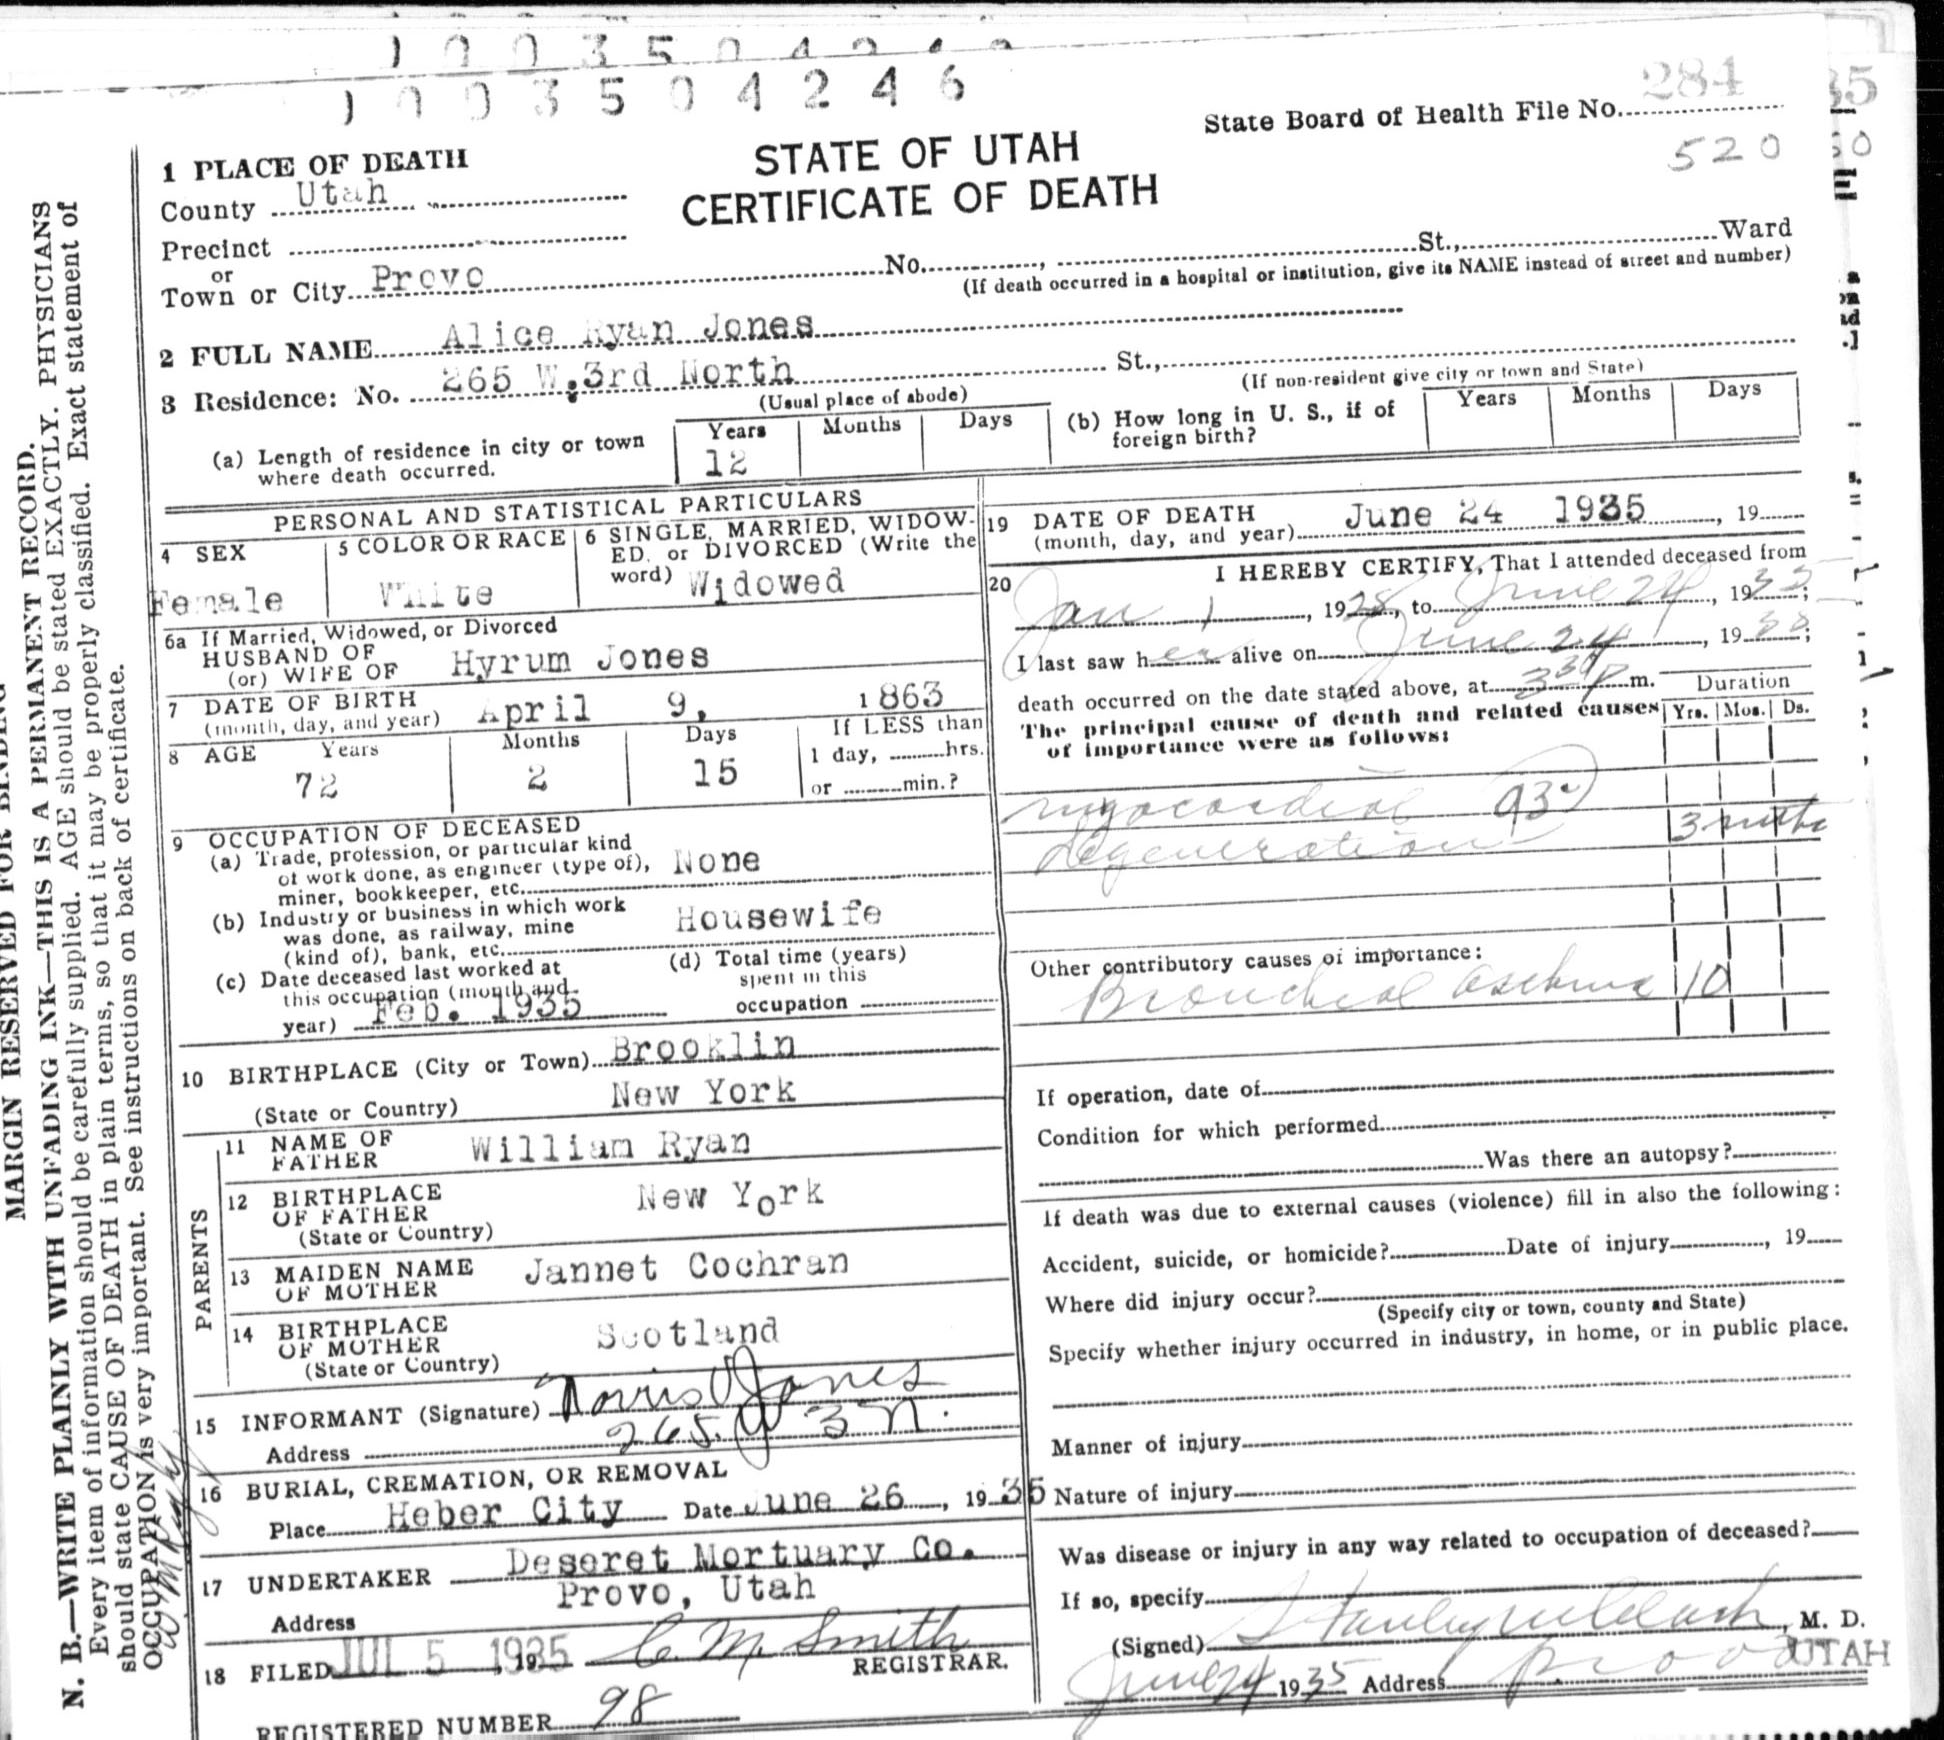 1003504246
284
State Board of Health File No.
520
STATE OF UTAH
CERTIFICATE OF DEATH
1 PLACE OF DEATH
County Utah
Precinct
or
Town or City Provo No. , St., Ward
(If death occurred in a hospital or institution, give its NAME instead of street and number)
2 FULL NAME Alice Ryan Jones
3 Residence: No. 265 W.3rd North St.,
(Usual place of abode) (If non-resident give city or town and State)
(a) Length of residence in city or town where death occurred. Years 12 Months Days
(b) How long in U. S., if of foreign birth? Years Months Days
PERSONAL AND STATISTICAL PARTICULARS
4 SEX
Female
5 COLOR OR RACE
White
6 SINGLE, MARRIED, WIDOW-
ED, or DIVORCED (Write the
word) Widowed
6a If Married, Widowed, or Divorced
HUSBAND OF
(or) WIFE OF Hyrum Jones
7 DATE OF BIRTH
(month, day, and year) April 9, 1863
8 AGE Years Months Days If LESS than
72 2 15 1 day, hrs.
or min.?
9 OCCUPATION OF DECEASED
(a) Trade, profession, or particular kind
of work done, as engineer (type of), None
miner, bookkeeper, etc.
(b) Industry or business in which work
was done, as railway, mine Housewife
(kind of), bank, etc.
(c) Date deceased last worked at
this occupation (month and
year) Feb. 1935
(d) Total time (years)
spent in this
occupation
10 BIRTHPLACE (City or Town) Brooklin
(State or Country) New York
PARENTS
11 NAME OF
FATHER William Ryan
12 BIRTHPLACE
OF FATHER New York
(State or Country)
13 MAIDEN NAME
OF MOTHER Jannet Cochran
14 BIRTHPLACE
OF MOTHER Scotland
(State or Country)
15 INFORMANT (Signature) Norris Jones
Address 265. W 3 N.
16 BURIAL, CREMATION, OR REMOVAL
Place Heber City Date June 26, 1935
17 UNDERTAKER Deseret Mortuary Co.
Address Provo, Utah
18 FILED JUL 5 1935, 19 C. M. Smith
REGISTRAR.
REGISTERED NUMBER 98
19 DATE OF DEATH
(month, day, and year) June 24 1935, 19
20 I HEREBY CERTIFY, That I attended deceased from
Jan 1, 1928, to June 24, 1935;
I last saw her alive on June 24, 1935;
death occurred on the date stated above, at 3 30 p m.
The principal cause of death and related causes
of importance were as follows:
Duration
Yrs. Mos. Ds.
myocardial 93
degeneration 3 mths
Other contributory causes of importance:
Bronchial asthma 10
If operation, date of
Condition for which performed
Was there an autopsy?
If death was due to external causes (violence) fill in also the following:
Accident, suicide, or homicide? Date of injury , 19
Where did injury occur?
(Specify city or town, county and State)
Specify whether injury occurred in industry, in home, or in public place.
Manner of injury
Nature of injury
Was disease or injury in any way related to occupation of deceased?
If so, specify
(Signed) Stanley M Clark, M. D.
June 24 1935 Address Provo UTAH
MARGIN RESERVED FOR BINDING
N. B.—WRITE PLAINLY WITH UNFADING INK—THIS IS A PERMANENT RECORD.
Every item of information should be carefully supplied. AGE should be stated EXACTLY. PHYSICIANS
should state CAUSE OF DEATH in plain terms, so that it may be properly classified. Exact statement of
OCCUPATION is very important. See instructions on back of certificate.